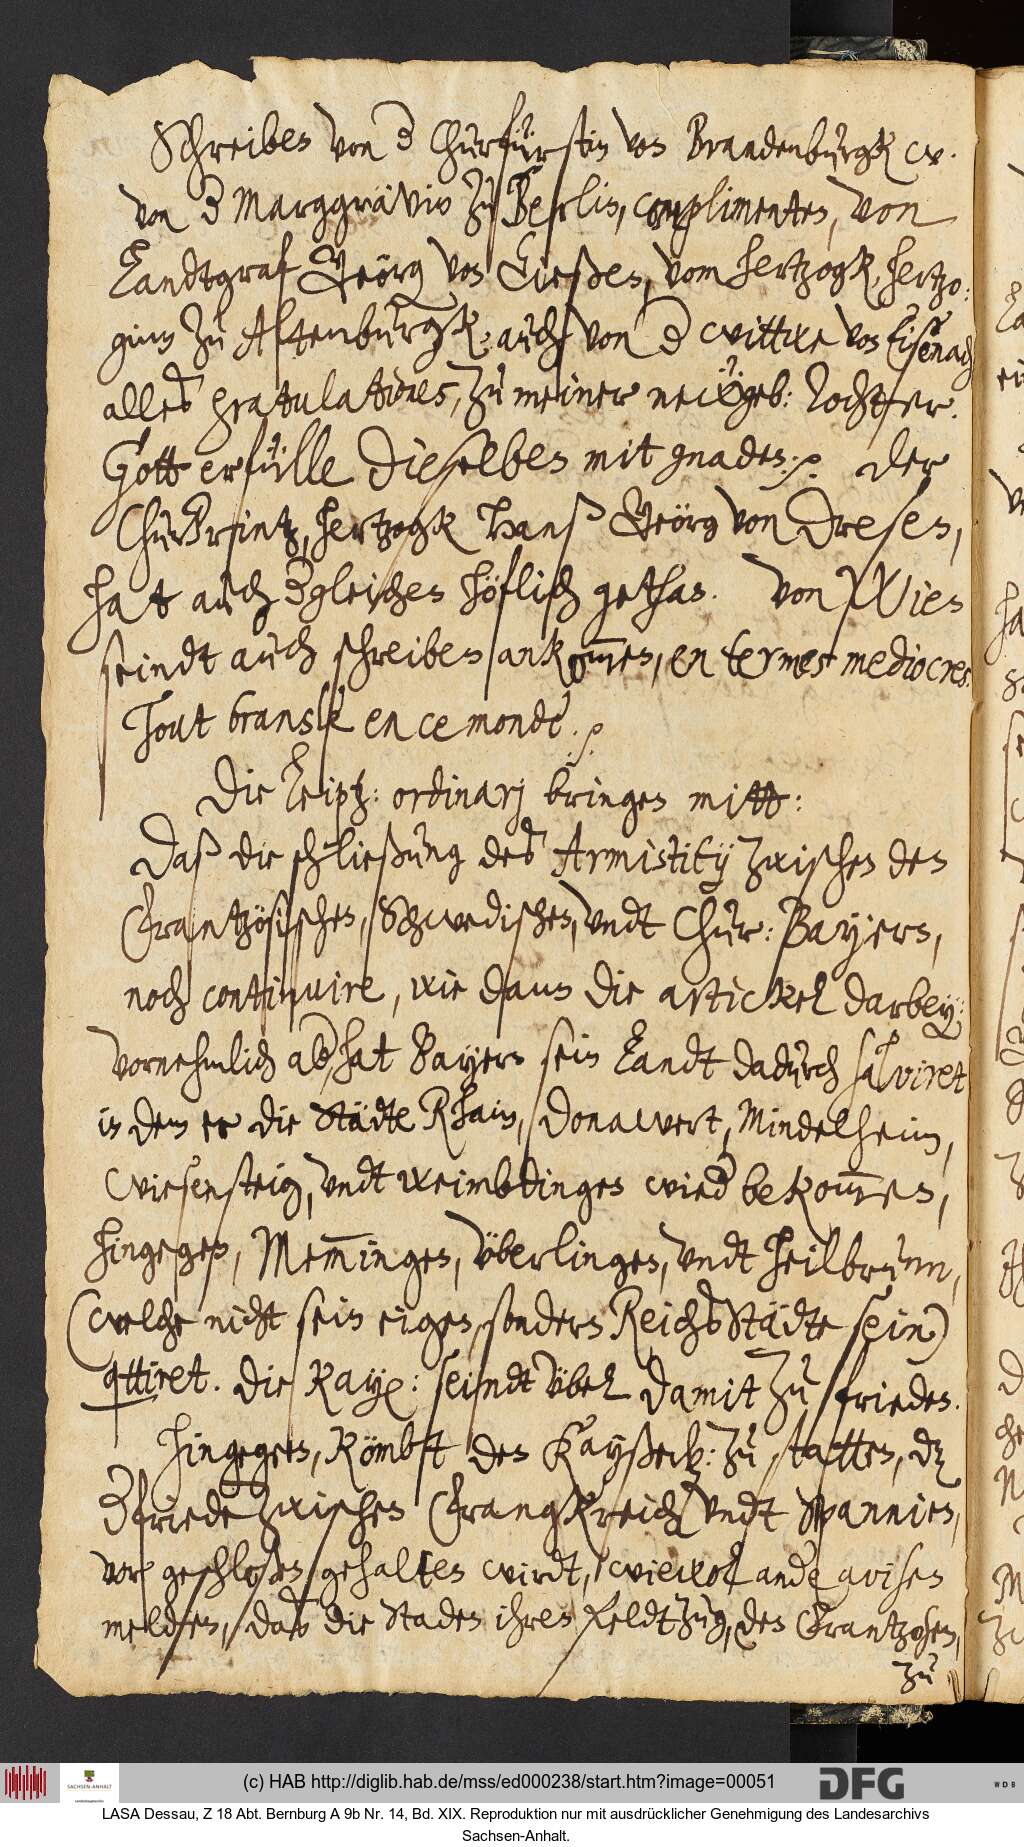 Schreiben von d Churfürstin von Brandenburgk w.
von d Marggrävin zu Berlin, complimenten, von
Landtgraf Geörg von Gießen, vom hertzogk, hertzo:
ginn zu Altenburgk, auch von d wittwe von Eisenach
alles gratulations, zu meiner neü geb: Tochter.
Gott erfülle dieselben mit gnaden. Der
ChurPrintz, hertzogk Hanß Geörg von Dresen,
hat auch dgleichen höflich gethan. Von Wien
seindt auch schreiben ankom̅en, en termes mediocres.
Tout bransle en ce monde.
Die Leiptz: ordinarj bringen mitt:
Daß die schließung des Armistitij zwischen den
Frantzösischen, Schwedischen, undt Chur: Bayern,
noch continuire, wie dann die artickel darbey:
vornehmlich aber, hat Bayern sein Landt dadurch salviret
in dem er die Städte Rhain, Donawert, Mindelheim,
Wiesensteig, undt weimbdingen wied bekom̅en,
hingegen, Mem̅ingen, Überlingen, undt Heilbrunn,
(welche nicht sein eigen, sondern ReichsStädte sein)
qttiret. Die Kayß: seindt übel damit zu frieden.
Hingegen, kömbt den Kayßerl: zu statten, dz
d friede zwischen Franckreich undt Spannien,
vor geschloßen gehalten wirdt, wiewol ande avisen
melden, daß die Staden ihren feldtzug, den Frantzosen,
zu
(c) HAB http://diglib.hab.de/mss/ed000238/start.htm?image=00051
SACHSEN-ANHALT
DFG
WDB
LASA Dessau, Z 18 Abt. Bernburg A 9b Nr. 14, Bd. XIX. Reproduktion nur mit ausdrücklicher Genehmigung des Landesarchivs
Sachsen-Anhalt.